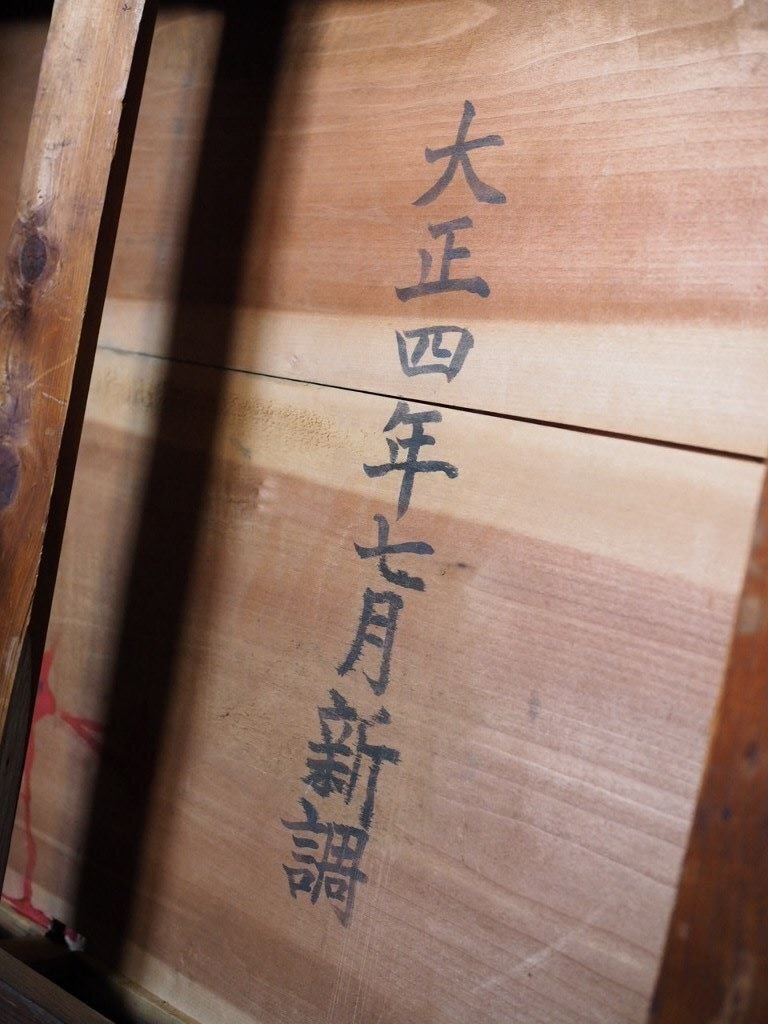 大正四年七月新調